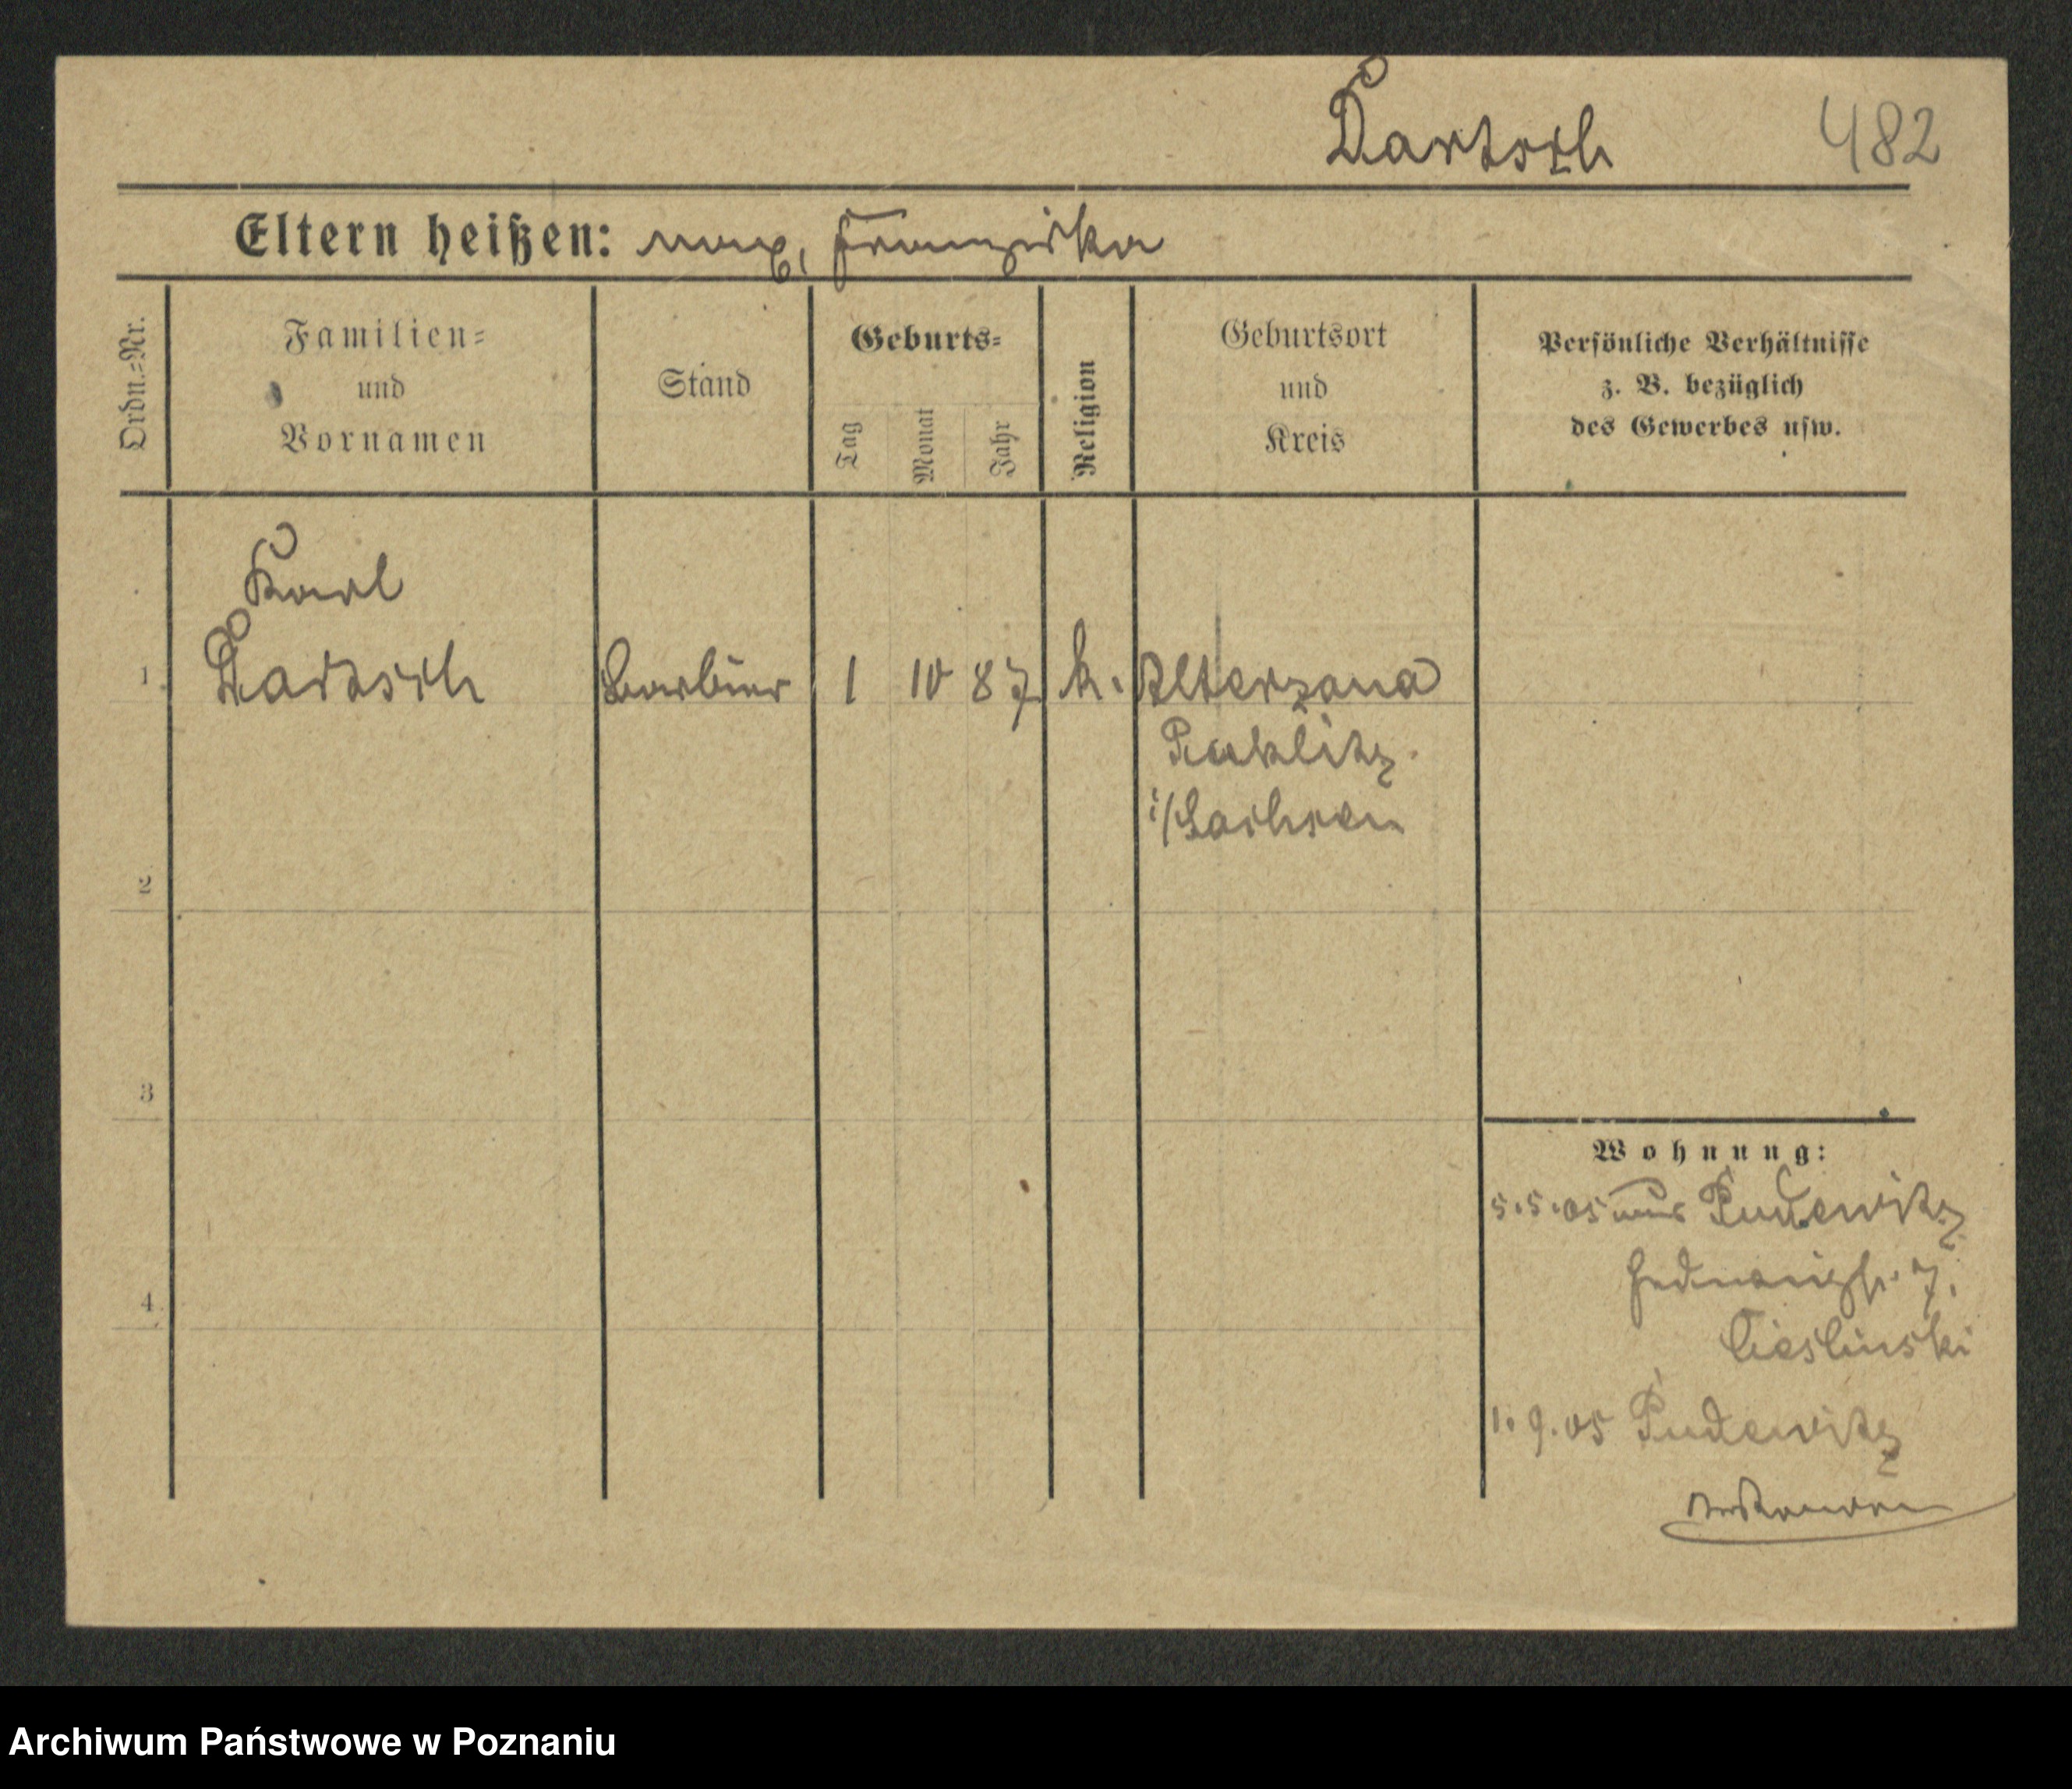 Dartsch 482
Eltern heißen: Max, Franziska
Ordn.-Nr.
Familien-
und
Vornamen
Stand
Geburts-
Tag
Monat
Jahr
Religion
Geburtsort
und
Kreis
Persönliche Verhältnisse
z. B. bezüglich
des Gewerbes usw.
Karl
1 Dartsch Barbier 1 10 87 k.
i/Sachsen
2
3
4
Wohnung:
5.5.05 aus Pudewitz
7.
Cieslinski
1.9.05 Pudewitz
Archiwum Państwowe w Poznaniu